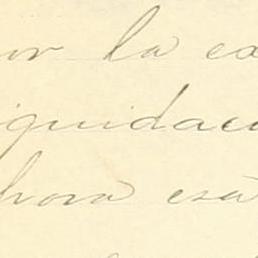 or la ex
iquidaci
hora esa